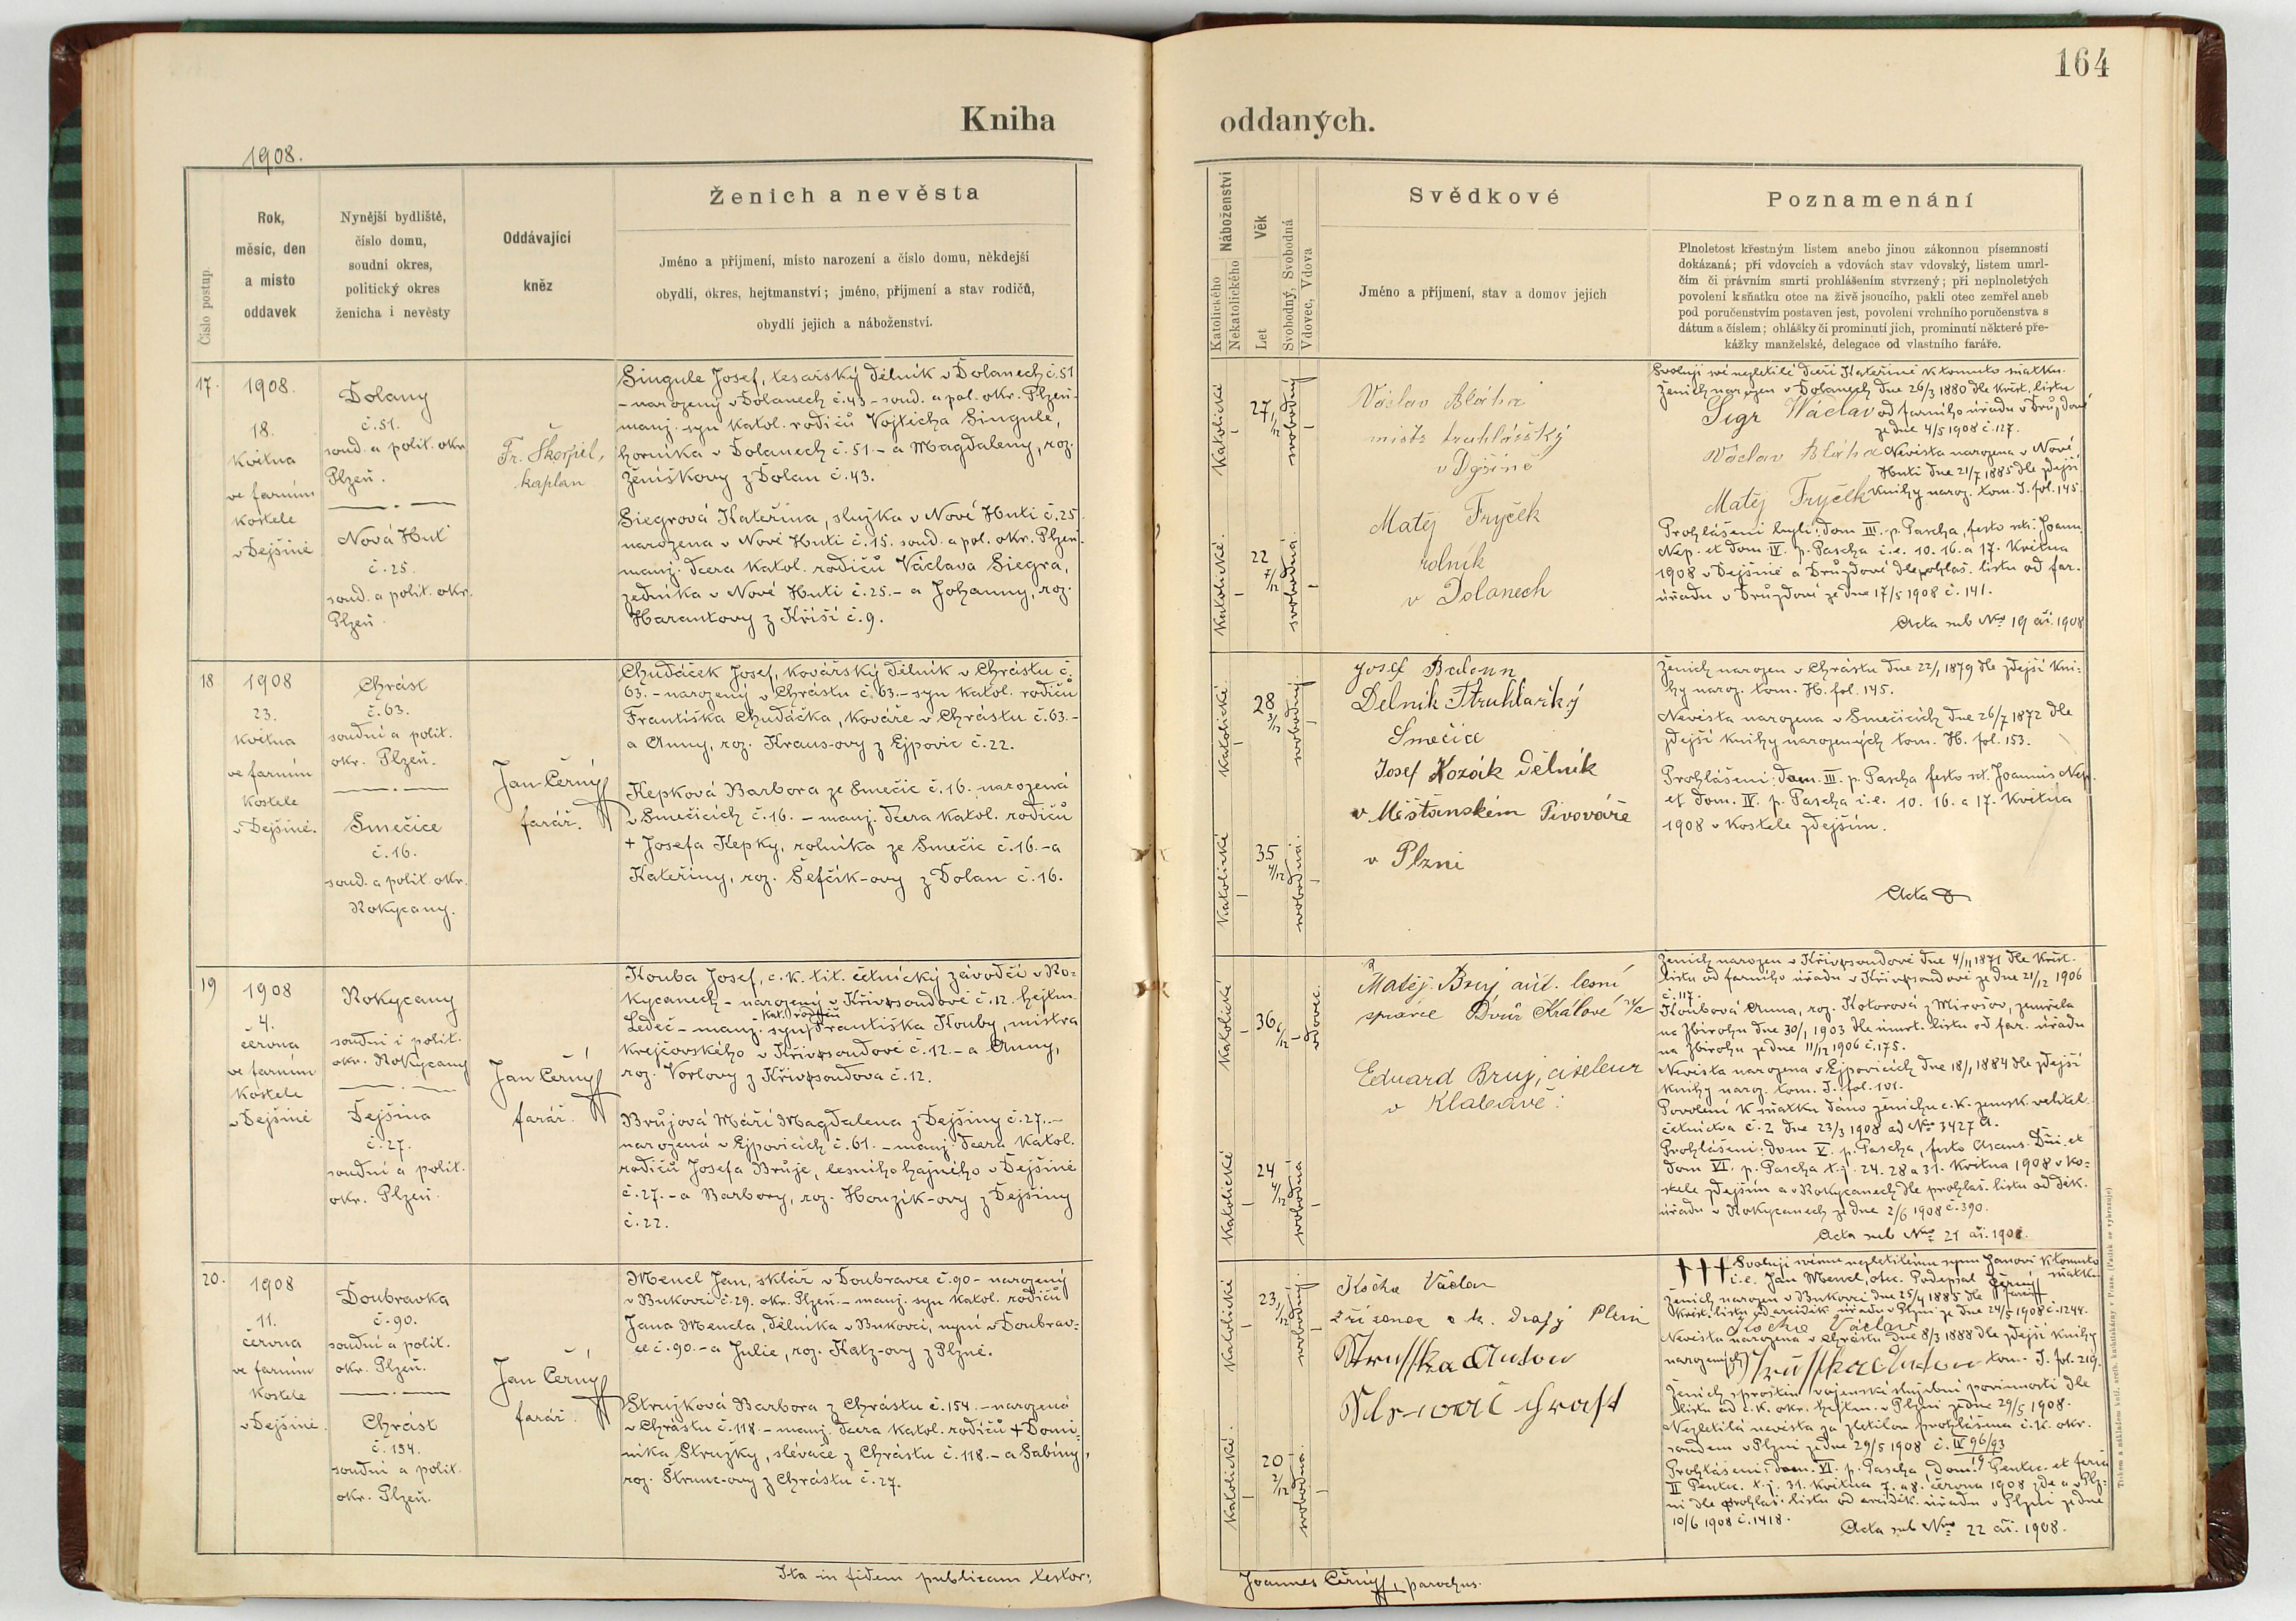 164
Kniha oddaných.
1908.
Číslo postup.
Rok,
měsíc, den
a místo
oddavek
Nynější bydliště,
číslo domu,
soudní okres,
politický okres
ženicha i nevěsty
Oddávající
kněz
Ženich a nevěsta
Jméno a příjmení, místo narození a číslo domu, někdejší
obydlí, okres, hejtmanství; jméno, příjmení a stav rodičů,
obydlí jejich a náboženství.
Náboženství
Katolického
Nekatolického
Věk
Let
Svobodný, Svobodná
Vdovec, Vdova
Svědkové
Jméno a příjmení, stav a domov jejich
Poznamenání
Plnoletost křestným listem anebo jinou zákonnou písemností
dokázaná; při vdovcích a vdovách stav vdovský, listem umrl-
čím či právním smrti prohlášením stvrzený; při neplnoletých
povolení k sňatku otce na živě jsoucího, pakli otec zemřel aneb
pod poručenstvím postaven jest, povolení vrchního poručenstva s
dátum a číslem; ohlášky či prominutí jich, prominutí některé pře-
kážky manželské, delegace od vlastního faráře.
17.
1908.
18.
května
ve farním
kostele
v Dejšině
Dolany
č. 51.
soud. a polit. okr.
Plzeň.
Nová Huť
č. 25.
soud. a polit. okr.
Plzeň.
Fr. Škorpil,
kaplan
Singule Josef, tesařský dělník v Dolanech č. 51
- narozený v Dolanech č. 43 - soud. a pol. okr. Plzeň -
manž. syn katol. rodičů Vojtěcha Singule,
horníka v Dolanech č. 51. - a Magdaleny, roz.
Ženíškovy z Dolan č. 43.
Siegrová Kateřina, služka v Nové Huti č. 25
narozena v Nové Huti č. 15. soud. a pol. okr. Plzeň.
manž. dcera katol. rodičů Václava Siegra,
zedníka v Nové Huti č. 25. - a Johanny, roz.
Harantovy z Kříší č. 9.
Katolické
27 1/12
svobodný
Katolické.
22 7/12
svobodná
Václav Bláha
mistr truhlářský
v Dýšině
Matěj Fryček
rolník
v Dolanech
Svoluji své nezletilé dceři Kateřině k tomuto sňatku.
Ženich narozen v Dolanech dne 26/3 1880 dle křest. listu
Sigr Wáclav od farního úřadu v Druzdové
ze dne 4/5 1908 č. 127.
Václav Bláha Nevěsta narozena v Nové
Huti dne 21/7 1885 dle zdejší
Matěj Fryček knihy naroz. tom. I. fol. 145.
Prohlášeni byli: dom III. p. Pascha, festo scti. Joann.
Nep. et dom. IV. p. Pascha i. e. 10. 16. a 17. května
1908 v Dejšině a Druzdové dle ohláš. listu od far.
úřadu v Druzdové ze dne 17/5 1908 č. 141.
Acta sub Nro 19 ai. 1908
18
1908
23.
května
ve farním
kostele
v Dejšině.
Chrást
č. 63.
soudní a polit.
okr. Plzeň.
Smečice
č. 16.
soud. a polit. okr.
Rokycany.
Jan Černý
farář.
Chudáček Josef, kovářský dělník v Chrástu č.
63. - narozený v Chrástu č. 63. - syn katol. rodičů
Františka Chudáčka, kováře v Chrástu č. 63. -
a Anny, roz. Kraus-ovy z Ejpovic č. 22.
Kepková Barbora ze Smečic č. 16. narozená
v Smečicích č. 16. - manž. dcera katol. rodičů
+ Josefa Kepky, rolníka ze Smečic č. 16. - a
Kateřiny, roz. Šefčík-ovy z Dolan č. 16.
Katolické
28 3/12
svobodný
Katolické
35 4/12
svobodná
Josef
Delník Truhlařký
Smečice
Josef Kozák dělník
v Měšťanském Pivováře
v Plzni
Ženich narozen v Chrástu dne 22/1 1879 dle zdejší kni-
hy naroz. tom. H. fol. 145.
Nevěsta narozena v Smečicích dne 26/7 1872 dle
zdejší knihy narozených tom. H. fol. 153.
Prohlášeni: dom. III. p. Pascha festo sct. Joannis Nep.
et dom. IV. p. Pascha i. e. 10. 16. a 17. května
1908 v kostele zdejším.
Acta
19
1908
4.
června
ve farním
kostele
v Dejšině
Rokycany
soudní i polit.
okr. Rokycany
Dejšina
č. 27.
soudní a polit.
okr. Plzeň.
Jan Černý
farář.
Kouba Josef, c. k. tit. četnický závodčí v Ro-
kycanech - narozený v Křivsoudově č. 12. hejtm.
Ledeč - manž. syn kat. rodičů Františka Kouby, mistra
krejčovského v Křivsoudově č. 12. - a Anny,
roz. Vorlovy z Křivsoudova č. 12.
Brůjová Máří Magdalena z Dejšiny č. 27. -
narozená v Ejpovicích č. 61. - manž. dcera katol.
rodičů Josefa Brůje, lesního hajného v Dejšině
č. 27. - a Barbory, roz. Houzík-ovy z Dejšiny
č. 22.
Katolické
36 6/12
vdovec.
Katolické
24 4/12
svobodná
Matěj Bruj lesní
správce Dvůr Králové n/L
Eduard Bruj, ciseleur
v Klabavě
Ženich narozen v Křivsoudově dne 4/11 1871 dle křest.
listu od farního úřadu v Křivsoudově ze dne 21/12 1906
č. 117.
Koubová Anna, roz. Kotorová z Mirošov, zemřela
na Zbirohu dne 30/1 1903 dle úmrt. listu od far. úřadu
na Zbirohu ze dne 11/12 1906 č. 175.
Nevěsta narozena v Ejpovicích dne 18/1 1884 dle zdejší
knihy naroz. tom. I. fol. 101.
Povolení k sňatku dáno ženichu c. k. zemsk. velitel.
četnictva č. 2 dne 23/3 1908 ad Nro 3427 A.
Prohlášeni: dom V. p. Pascha, festo Ascens. Dni. et
dom VI. p. Pascha t. j. 24. 28 a 31. května 1908 v ko-
stele zdejším a v Rokycanech dle prohláš. listu od děk.
úřadu v Rokycanech ze dne 2/6 1908 č. 390.
Acta sub Nro 21 ai. 1908.
20.
1908
11.
června
ve farním
kostele
v Dejšině.
Doubravka
č. 90.
soudní a polit.
okr. Plzeň.
Chrást
č. 154.
soudní a polit.
okr. Plzeň.
Jan Černý
farář.
Mencl Jan, sklář v Doubravce č. 90 - narozený
v Bukovci č. 29. okr. Plzeň. - manž. syn katol. rodičů
Jana Mencla, dělníka v Bukovci, nyní v Doubrav-
ce č. 90. - a Julie, roz. Katz-ovy z Plzně.
Stružková Barbora z Chrástu č. 154. - narozená
v Chrástu č. 118. - manž. dcera katol. rodičů + Domi-
nika Stružky, slévače z Chrástu č. 118. - a Sabiny,
roz. Štrunc-ovy z Chrástu č. 27.
Katolické
23 1/12
svobodný
Katolické.
20 2/12
svobodná
Kočka Václav
zřízenec c k. dráhy Plzni
Struska Anton
Chrast
††† Svoluji svému nezletilému synu Janovi k tomuto
i. e. Jan Mencl, otec. Podepsal Černý sňatku
farář
Ženich narozen v Bukovci dne 25/4 1885 dle
křest. listu od arciděk. úřadu v Plzni ze dne 24/5 1908 č. 1244.
Kočka Václav
Nevěsta narozena v Chrástu dne 8/3 1888 dle zdejší knihy
narozených Struska Anton tom. I. fol. 219.
Ženich sproštěn vojenské služební povinnosti dle
listu od c. k. okr. hejtm. v Plzni ze dne 29/5 1908.
Nezletilá nevěsta za zletilou prohlášena c. k. okr.
soudem v Plzni ze dne 29/5 1908 č. IV 96/93
Prohlášeni: dom. VI. p. Pascha, dom. Pentec. et feria
II Pentec. t. j. 31. května 7. a 8. června 1908 zde a v Plz-
ni dle prohláš. listu od arciděk. úřadu v Plzni ze dne
10/6 1908 č. 1418.
Acta sub Nro 22 ai. 1908.
Ita in fidem publicam testor:
Joannes Černý, parochus.